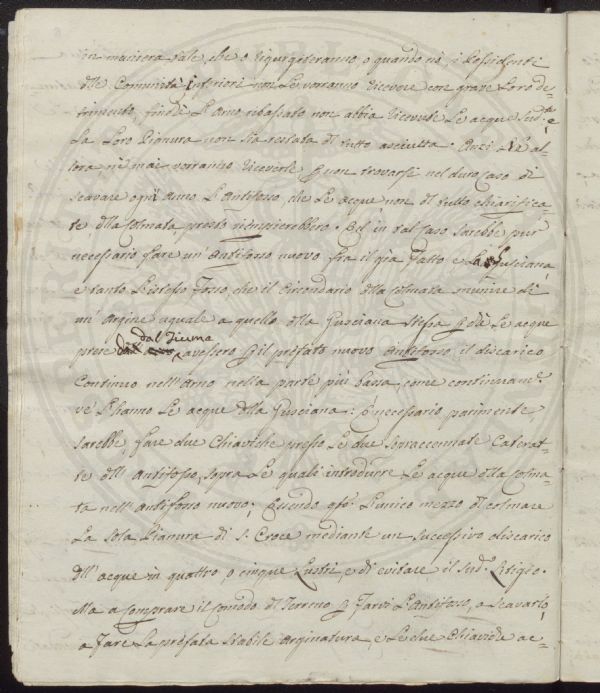 in maniera tale, che o rigurgiteranno, o quando nò, i Possidenti
dlle Comunità inferiori non Le vorranno ricevere con grave Loro de-
trimento, finchè L'Arno ribassato non abbia ricevute Le acque sud.te e
La Loro Pianura non sia restata dl tutto asciutta. Anzi nè al-
lora, nè mai vorranno riceverle p non trovarsi nel duro caso di
scavare ogni Anno L'Antifosso, che Le acque non dl tutto chiarifica-
te dlla Colmata presto riempierebbero. Ed in tal caso sarebbe pur
necessario fare un' Antifosso nuovo fra il già fatto e La Gusciana,
e tanto L'istesso fosso, che il Circondario dlla Colmata munire di
un' Argine uguale a quello dlla Gusciana stessa
prese dal Fiume avessero p il prefato nuovo Antifosso il discarico
continuo nell'Arno nella parte più bassa, come continuam.e
ve L'hanno Le acque dlla Gusciana: È necessario parimente,
sarebbe, fare due Chiaviche presso Le due sopraccennate Caterat-
te dll' Antifosso, sopra Le quali introdurre Le acque dlla Colma-
ta nell'Antifosso nuovo; Essendo qsto L'unico mezzo dl colmare
La sola Pianura di S. Croce mediante un successivo discarico
dll' acque in quattro o cinque Lustri, e di evitare il sud.o Litigio.
Ma a comprare il comodo dl Terreno p farvi L'Antifosso, a scavarlo,
a fare La prefata stabile Arginatura, e Le due Chiaviche ac-